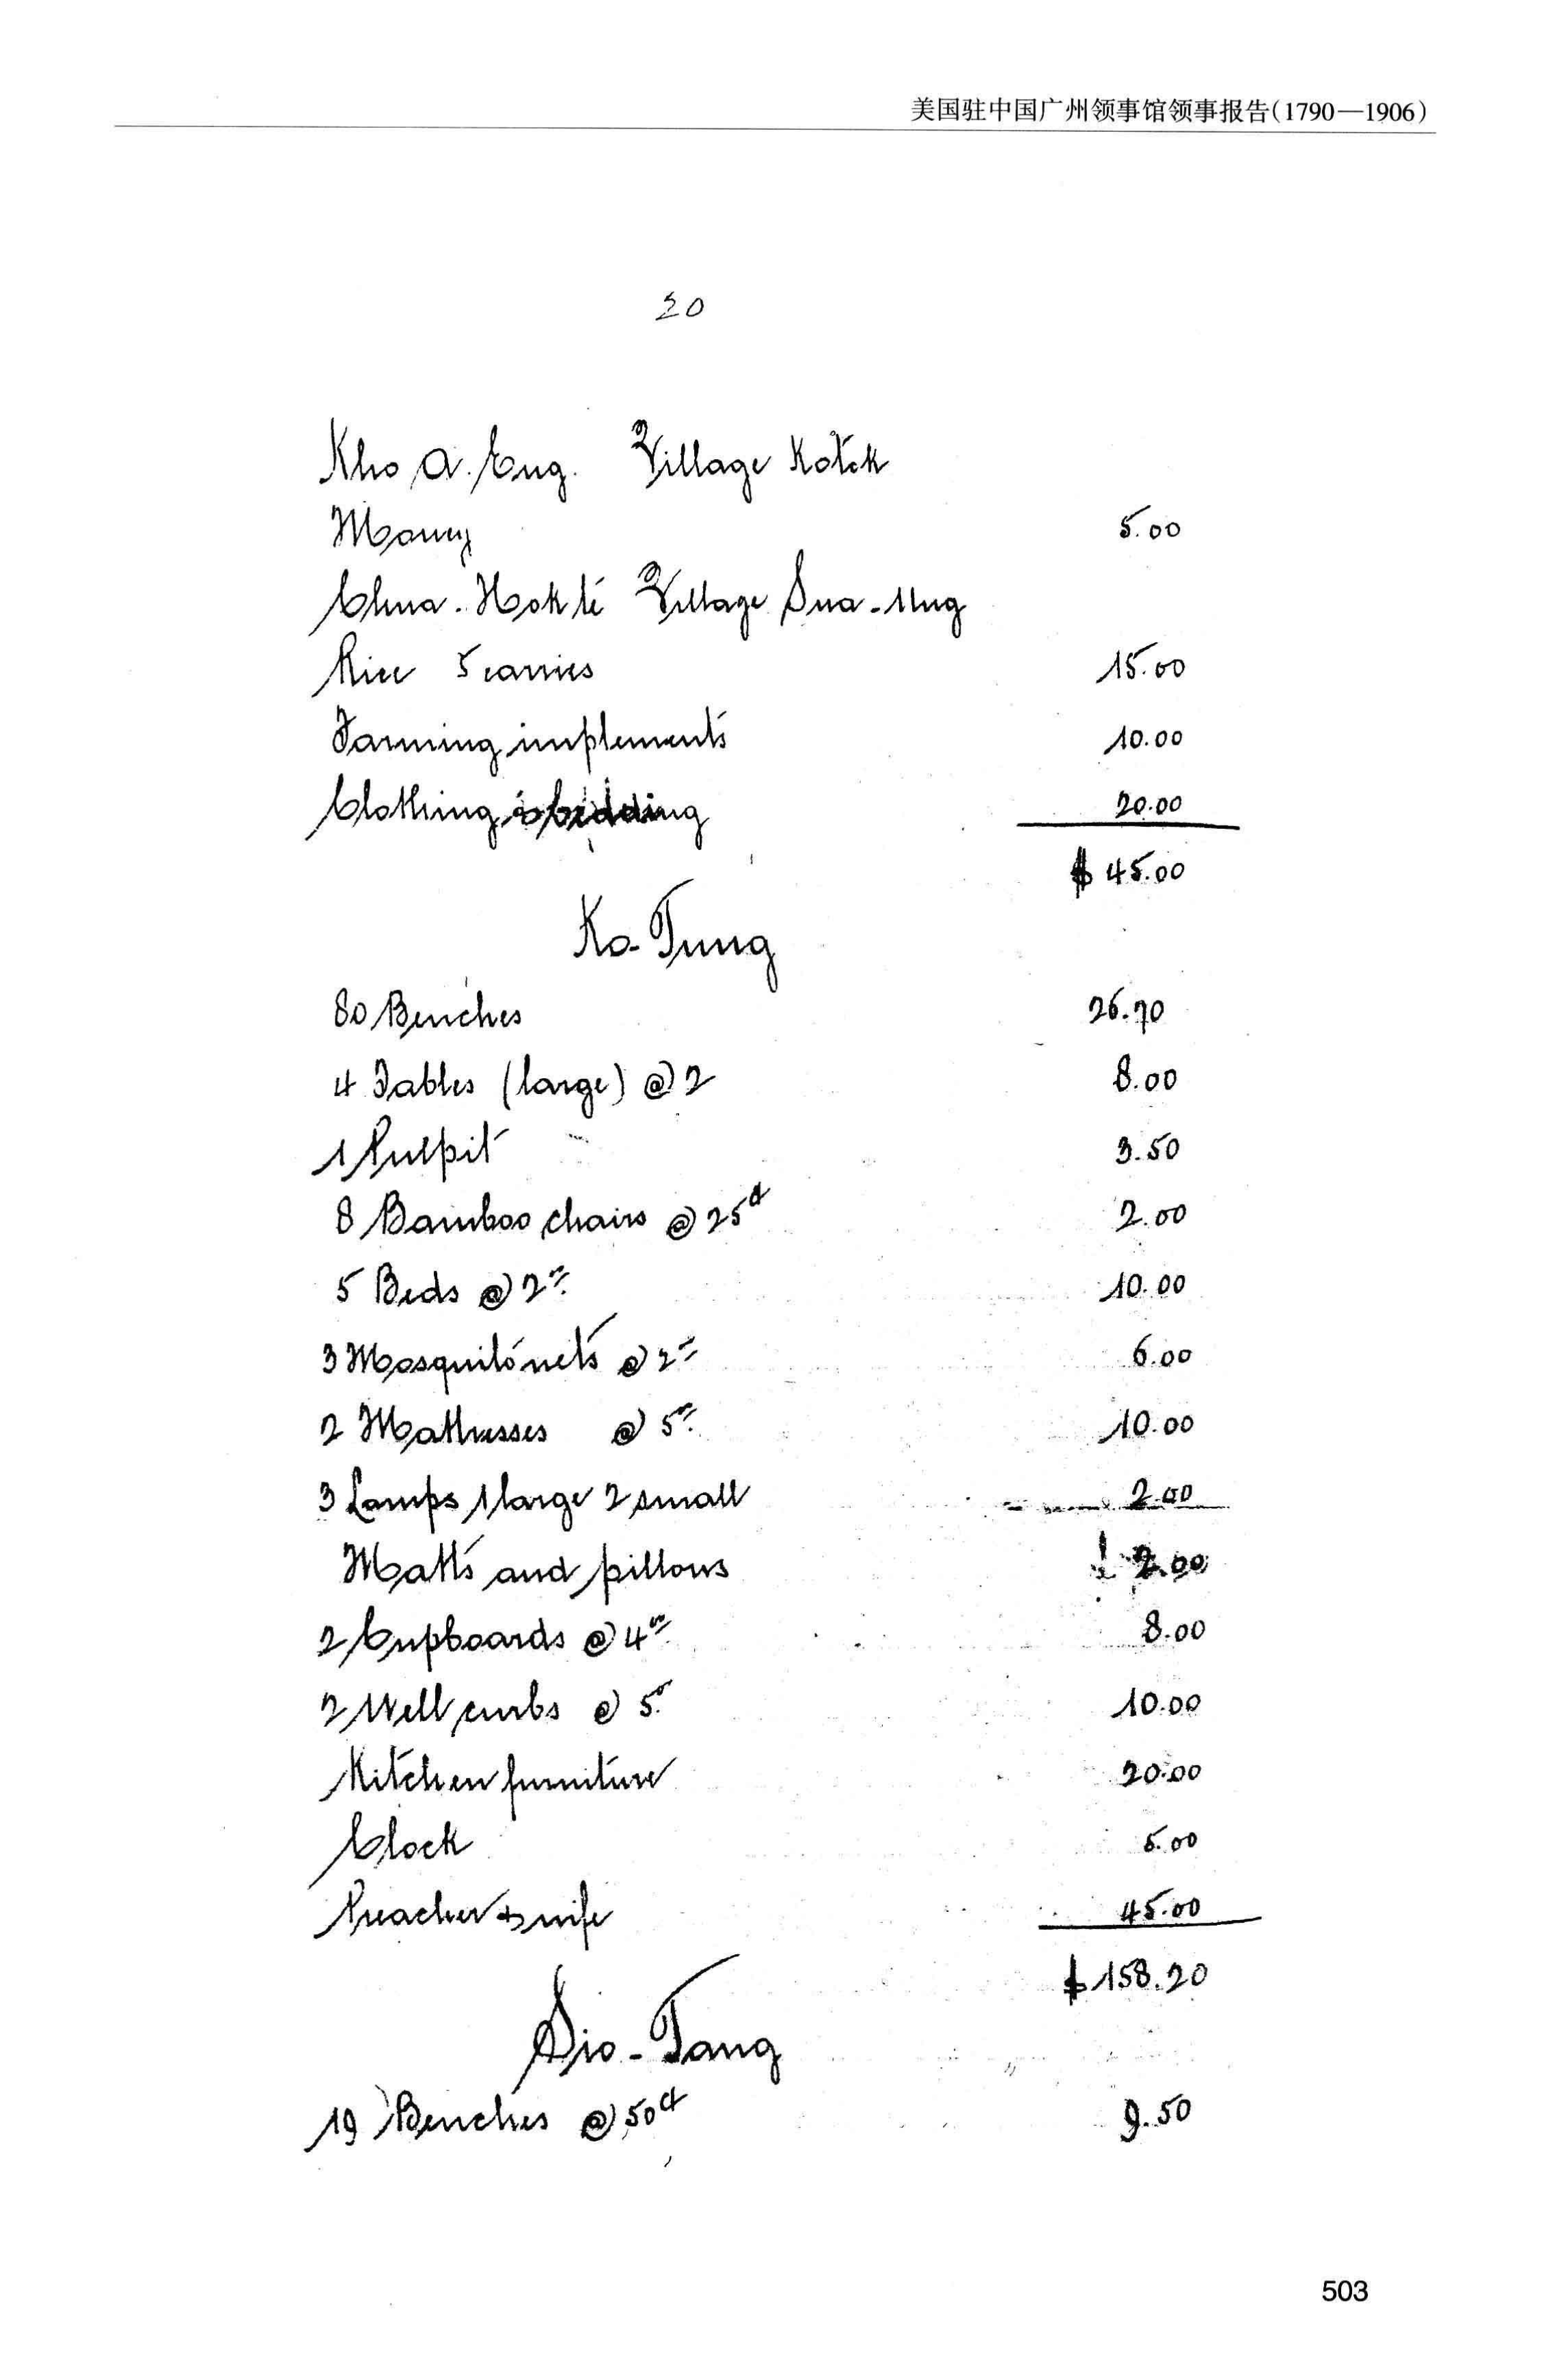 美国驻中国广州领事馆领事报告(1790—1906)
20
Kho A. Eng. Village Kotek
Money 5.00
Chua. Hok li Village Sua-Ung
Rice 5 carries 15.00
Farming implements 10.00
Clothing & bedding 20.00
$ 45.00
Ko-Tung
80 Benches 26.70
4 Tables (large) @ 2 8.00
1 Pulpit 3.50
8 Bamboo chairs @ 25¢ 2.00
5 Beds @ 2 10.00
3 Mosquito nets @ 2 6.00
2 Mattresses @ 5 10.00
3 Lamps 1 large 2 small 2.00
Matts and pillows 2.00
2 Cupboards @ 4 8.00
2 Well curbs @ 5 10.00
Kitchen furniture 20.00
Clock 5.00
Preacher & wife 45.00
$ 158.20
Sio-Tang
19 Benches @ 50¢ 9.50
503